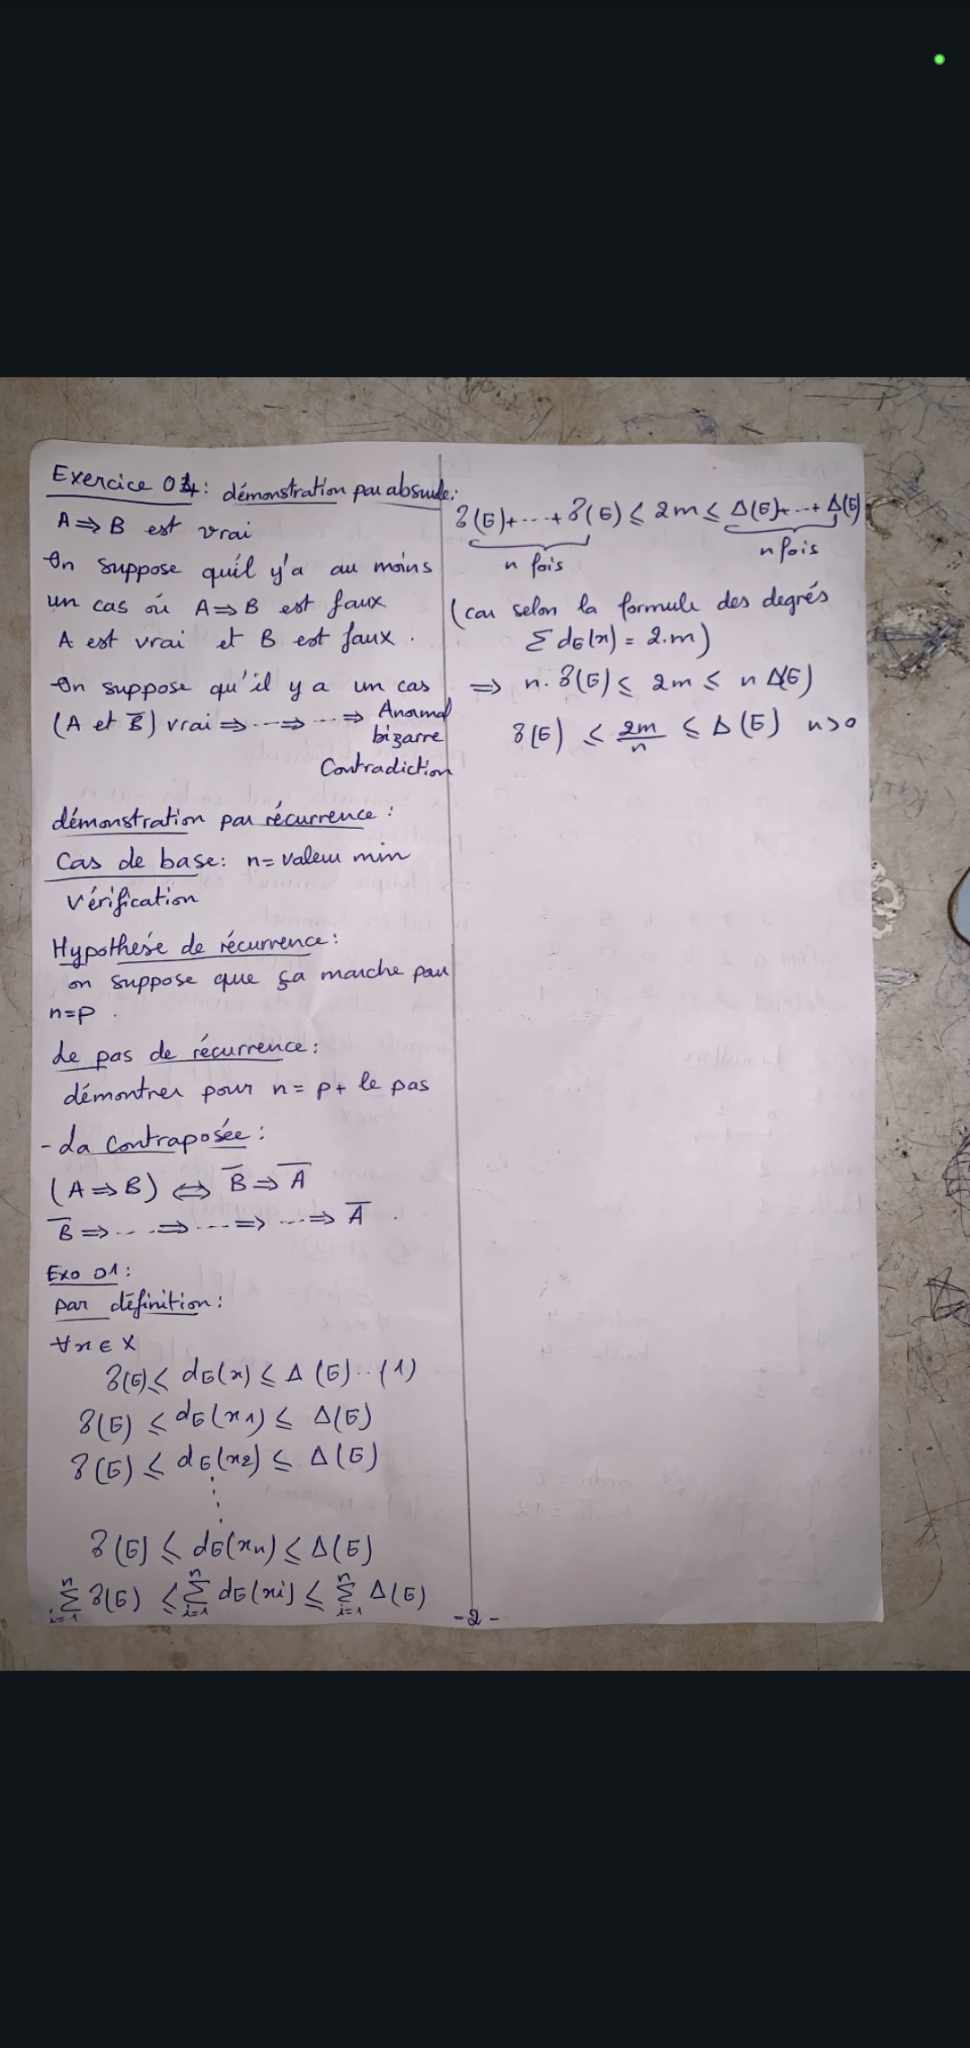 Exercice 04: démonstration par absurde:
A ⇒ B est vrai
On suppose qu'il y'a au moins
un cas où A ⇒ B est faux
A est vrai et B est faux.
On suppose qu'il y a un cas
(A et B̅) vrai ⇒ ... ⇒ ... ⇒ Anormal
bizarre
Contradiction
démonstration par récurrence:
Cas de base: n = valeur min
vérification
Hypothésé de récurrence:
on suppose que ça marche pour
n=p.
Le pas de récurrence:
démontrer pour n = p + le pas
- La contraposée:
(A ⇒ B) ⇔ B̅ ⇒ A̅
B̅ ⇒ ... ⇒ ... ⇒ ... ⇒ A̅.
Exo 01:
par définition:
∀x ∈ X
δ(G) ≤ dG(x) ≤ Δ(G) ... (1)
δ(G) ≤ dG(x1) ≤ Δ(G)
δ(G) ≤ dG(x2) ≤ Δ(G)
⋮
δ(G) ≤ dG(xn) ≤ Δ(G)
n n n
∑ δ(G) ≤ ∑ dG(xi) ≤ ∑ Δ(G)
i=1 i=1 i=1
δ(G)+...+δ(G) ≤ 2m ≤ Δ(G)+...+Δ(G)
n fois n fois
(car selon la formule des degrés
∑ dG(x) = 2.m)
⇒ n.δ(G) ≤ 2m ≤ n Δ(G)
δ(G) ≤ 2m/n ≤ Δ(G) n>0
-2-